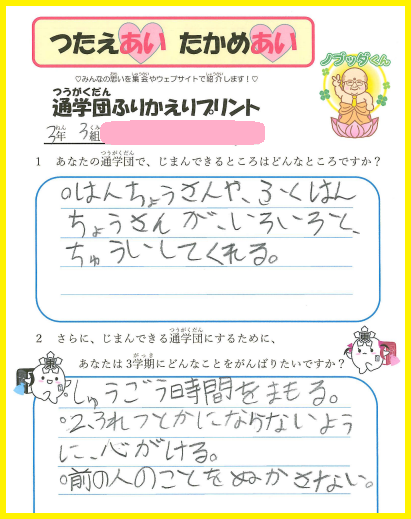 つたえあい たかめあい
♡みんなの思いを集会やウェブサイトで紹介します！♡
ノブッダくん
つうがくだん
通学団ふりかえりプリント
3年 3組
1 あなたの通学団で、じまんできるところはどんなところですか？
○はんちょうさんや、ふくはん
ちょうさんが、いろいろと、
ちゅういしてくれる。
2 さらに、じまんできる通学団にするために、
あなたは3学期にどんなことをがんばりたいですか？
○しゅうごう時間をまもる。
○2、ふれつとかにならないよう
に、心がける。
○前の人のことをぬかさない。